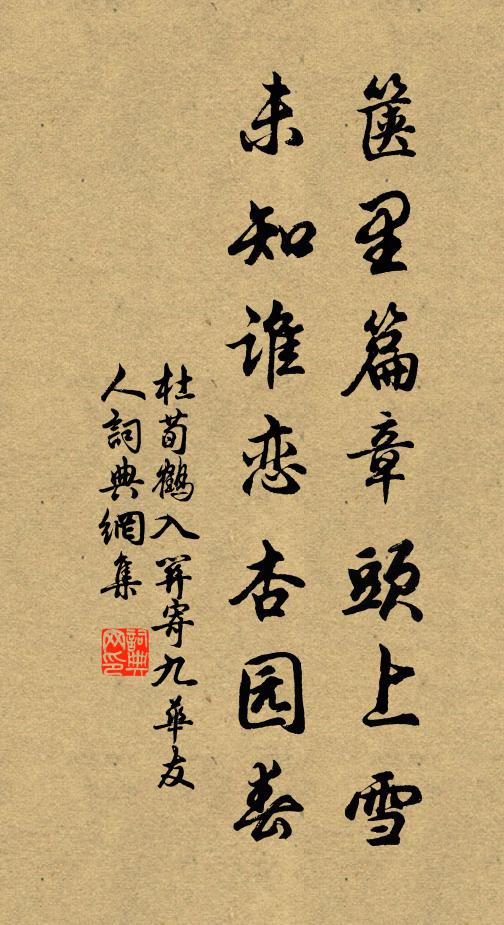 篋里篇章頭上雪
未知谁恋杏园春
杜荀鶴入關寄九華友
人詞典網集
詞典網印